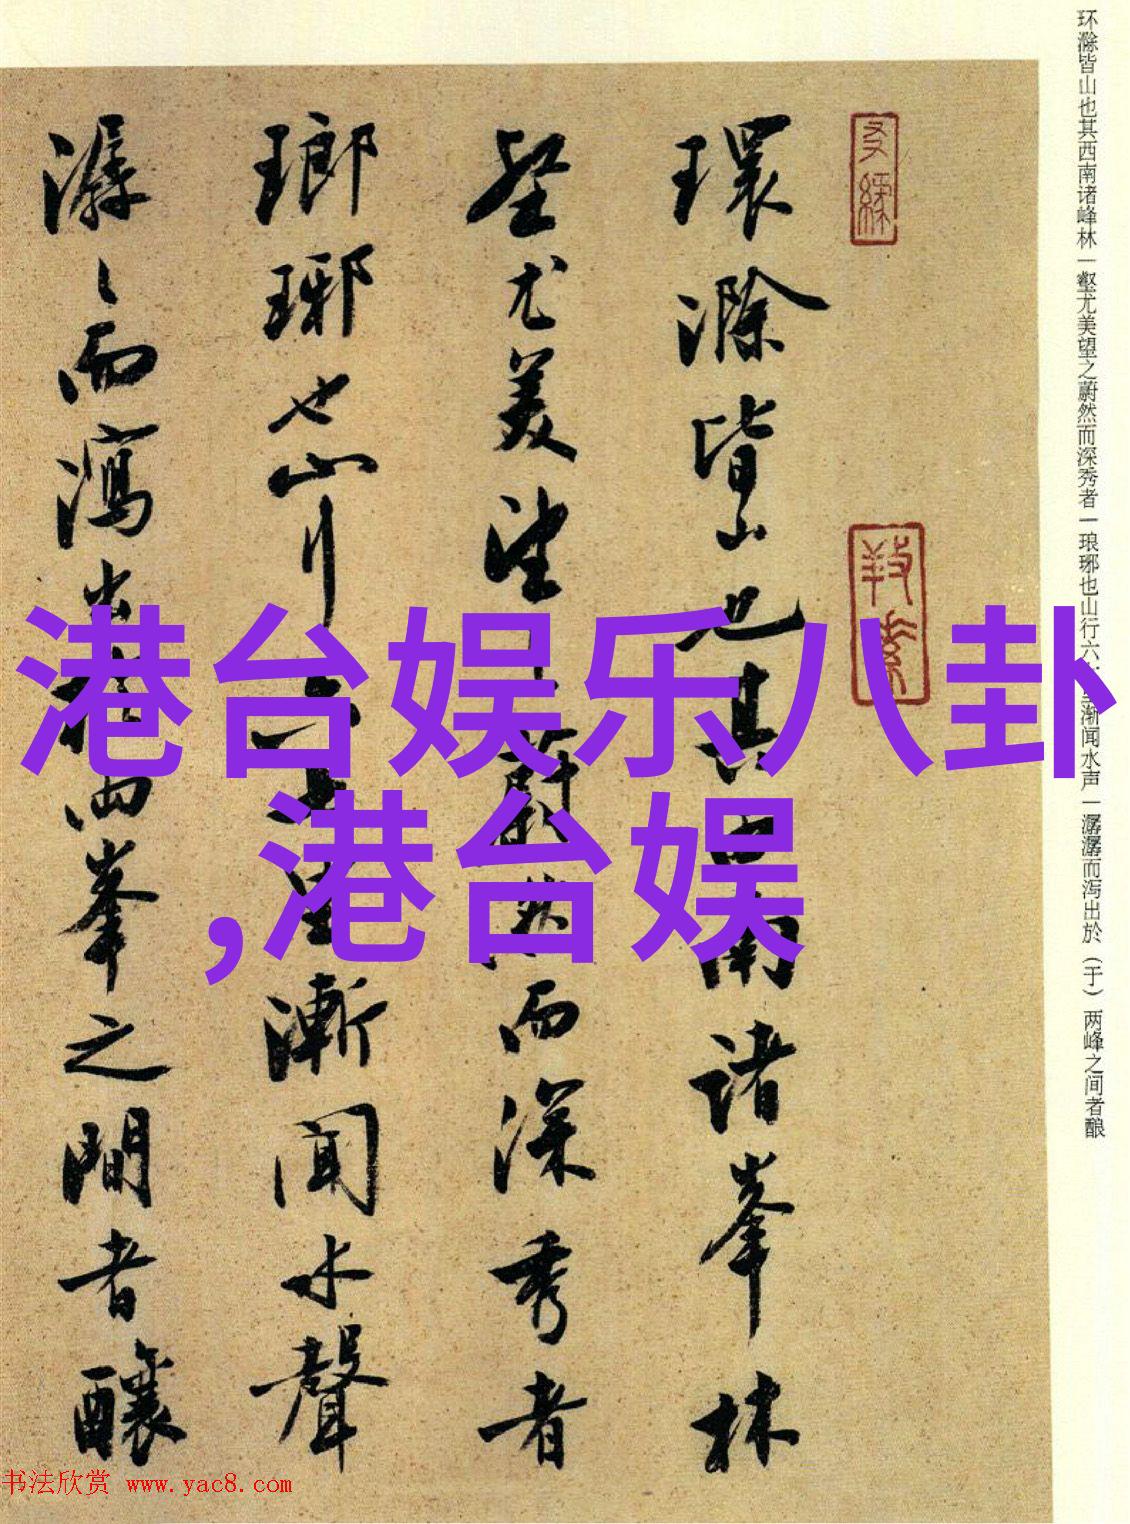 环滁皆山也其西南诸峰林一壑尤美望之蔚然而深秀者一琅琊也山行六七里渐闻水声一潺潺而泻出於（于）两峰之间者酿
環滁皆山也其西南諸峯林
壑尤美望之蔚然而深秀者
瑯琊也山行六七里漸聞水聲
潺〻而瀉出於兩峯之間者釀
港台娱乐八卦
,港台娱
书法欣赏 www.yac8.com